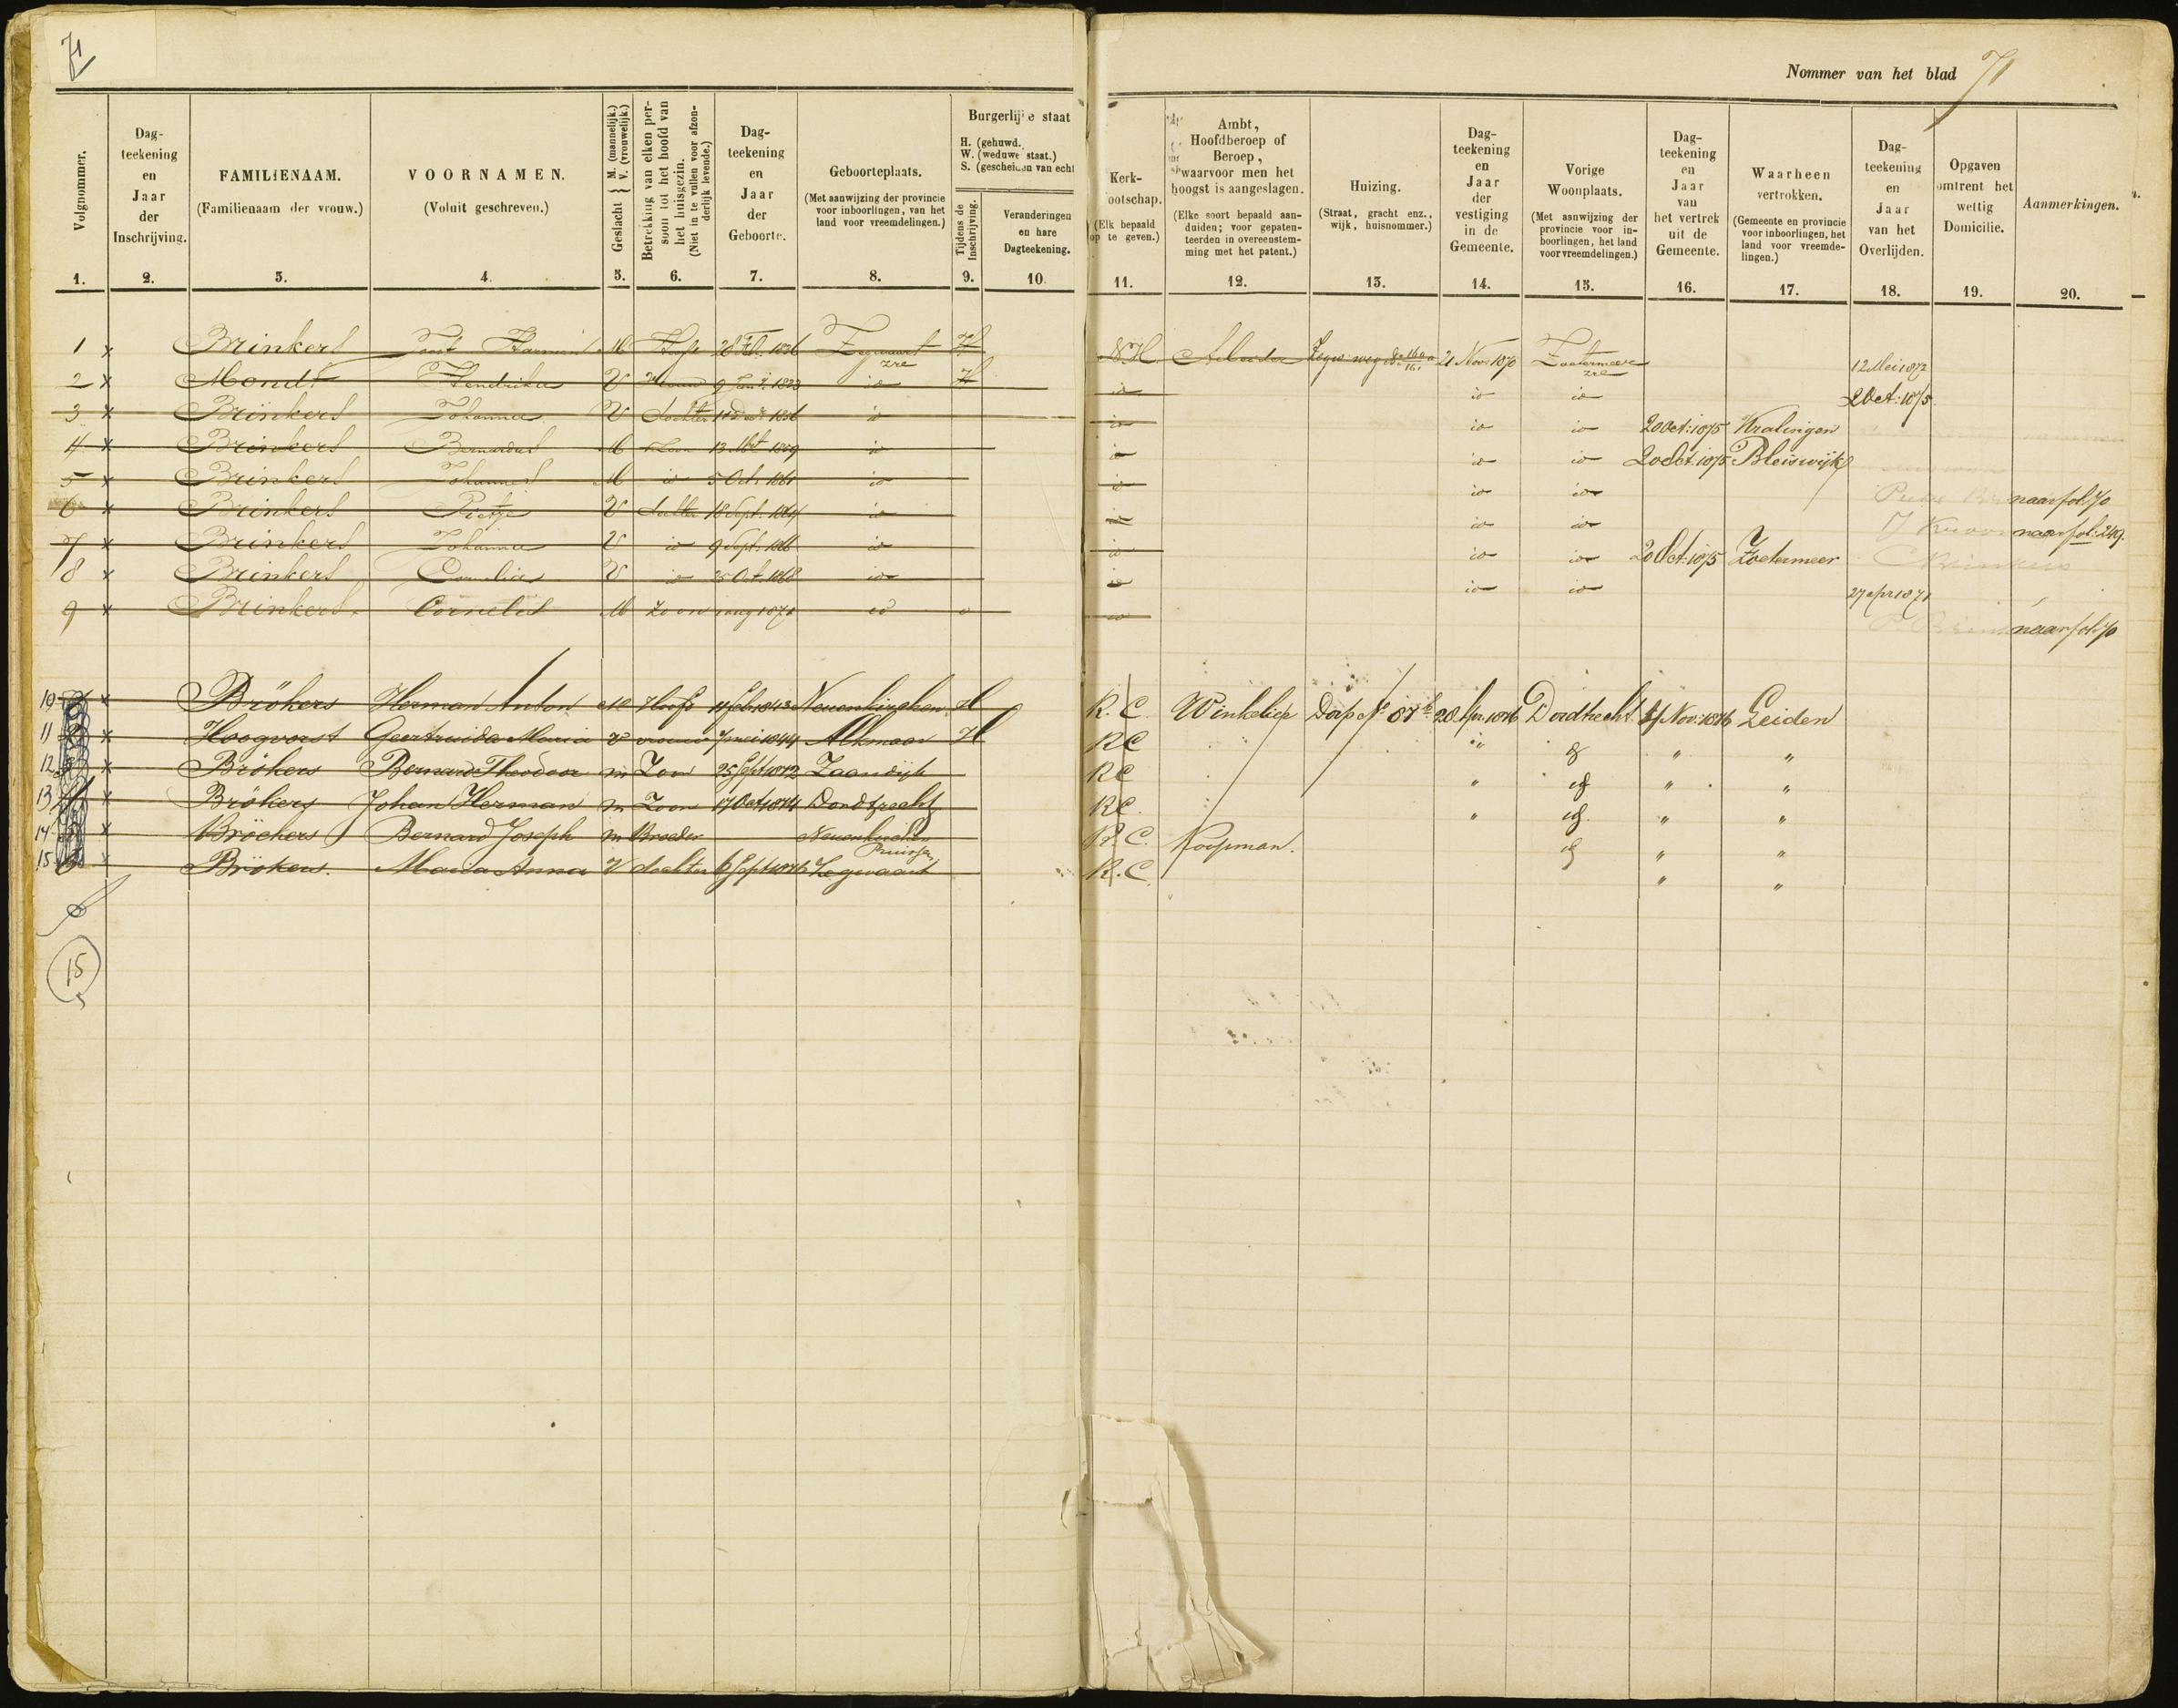 71
Nommer van het blad 71
Volgnommer.
Dag-
teekening
en
Jaar
der
Inschrijving.
FAMILIENAAM.
(Familienaam der vrouw.)
VOORNAMEN.
(Voluit geschreven.)
Geslacht { M. (mannelijk.) V. (vrouwelijk.)
Betrekking van elken per-
soon tot het hoofd van
het huisgezin.
(Niet in te vullen voor afzon-
derlijk levende.)
Dag-
teekening
en
Jaar
der
Geboorte.
Geboorteplaats.
(Met aanwijzing der provincie
voor inboorlingen, van het
land voor vreemdelingen.)
Burgerlijke staat
H. (gehuwd.
W. (weduwe staat.)
S. (gescheiden van echt
Tijdens de
Inschrijving.
Veranderingen
en hare
Dagteekening.
Kerk-
ootschap.
(Elk bepaald
op te geven.)
Ambt,
Hoofdberoep of
Beroep,
waarvoor men het
hoogst is aangeslagen.
(Elke soort bepaald aan-
duiden; voor gepaten-
teerden in overeenstem-
ming met het patent.)
Huizing.
(Straat, gracht enz.,
wijk, huisnommer.)
Dag-
teekening
en
Jaar
der
vestiging
in de
Gemeente.
Vorige
Woonplaats.
(Met aanwijzing der
provincie voor in-
boorlingen, het land
voor vreemdelingen.)
Dag-
teekening
en
Jaar
van
het vertrek
uit de
Gemeente.
Waarheen
vertrokken.
(Gemeente en provincie
voor inboorlingen, het
land voor vreemde-
lingen.)
Dag-
teekening
en
Jaar
van het
Overlijden.
Opgaven
omtrent het
wettig
Domicilie.
Aanmerkingen.
1. 2. 3. 4. 5. 6. 7. 8. 9. 10. 11. 12. 13. 14. 15. 16. 17. 18. 19. 20.
1 x Brinkers Joost M Hoofd 28 Feb. Zegwaart zre H N.H. Arbeider 21 Nov 1870 Zoetermeer zre 12 Mei 1872
2 x Mondt Hendrika V Vrouw 9 1833 id H id id id 2 Oct: 1875
3 x Brinkers Johanna V dochter id id id id 20 Oct: 1875 Kralingen
4 x Brinkers Bernardus M Zoon 1859 id id id id 20 Oct. 1875 Bleiswijk
5 x Brinkers Johannes M id 5 Oct. 1861 id id id id naar fol. 70
6 x Brinkers Pietje V 18 Sept. 1864 id id id id naar fol: 249.
7 x Brinkers Johanna V id 9 Sept. 1866 id id id id 20 Oct: 1875 Zoetermeer
8 x Brinkers Cornelia V id 25 Oct. 1868 id id id id 27 apr 1871
9 x Brinkers Cornelis M Zoon 1871 id id naar fol. 70
10 x Brökers Herman Anton M Hoofd 11 feb. 1843 Neuenkirchen H R.C. Winkelier Dorp No 87 28 Apr. 1876 Dordrecht Nov: 1876 Leiden
11 x Hoogvorst Geertruida Maria V vrouw 7 mei 1844 Alkmaar H RC " " "
12 x Brökers Bernard Theodoor m Zoon 25 Sept 1872 Zaandijk RC " " "
13 x Brökers Johan Herman m Zoon 17 Oct 1874 Dordtrecht RC. " " "
14 x Bröckers Bernard Joseph m Broeder Neuenkirchen Pruisen R.C. Koopman. " "
15 x Brökers. Maria Anna V dochter 6 Sept 1876 Zegwaart R.C. " "
15